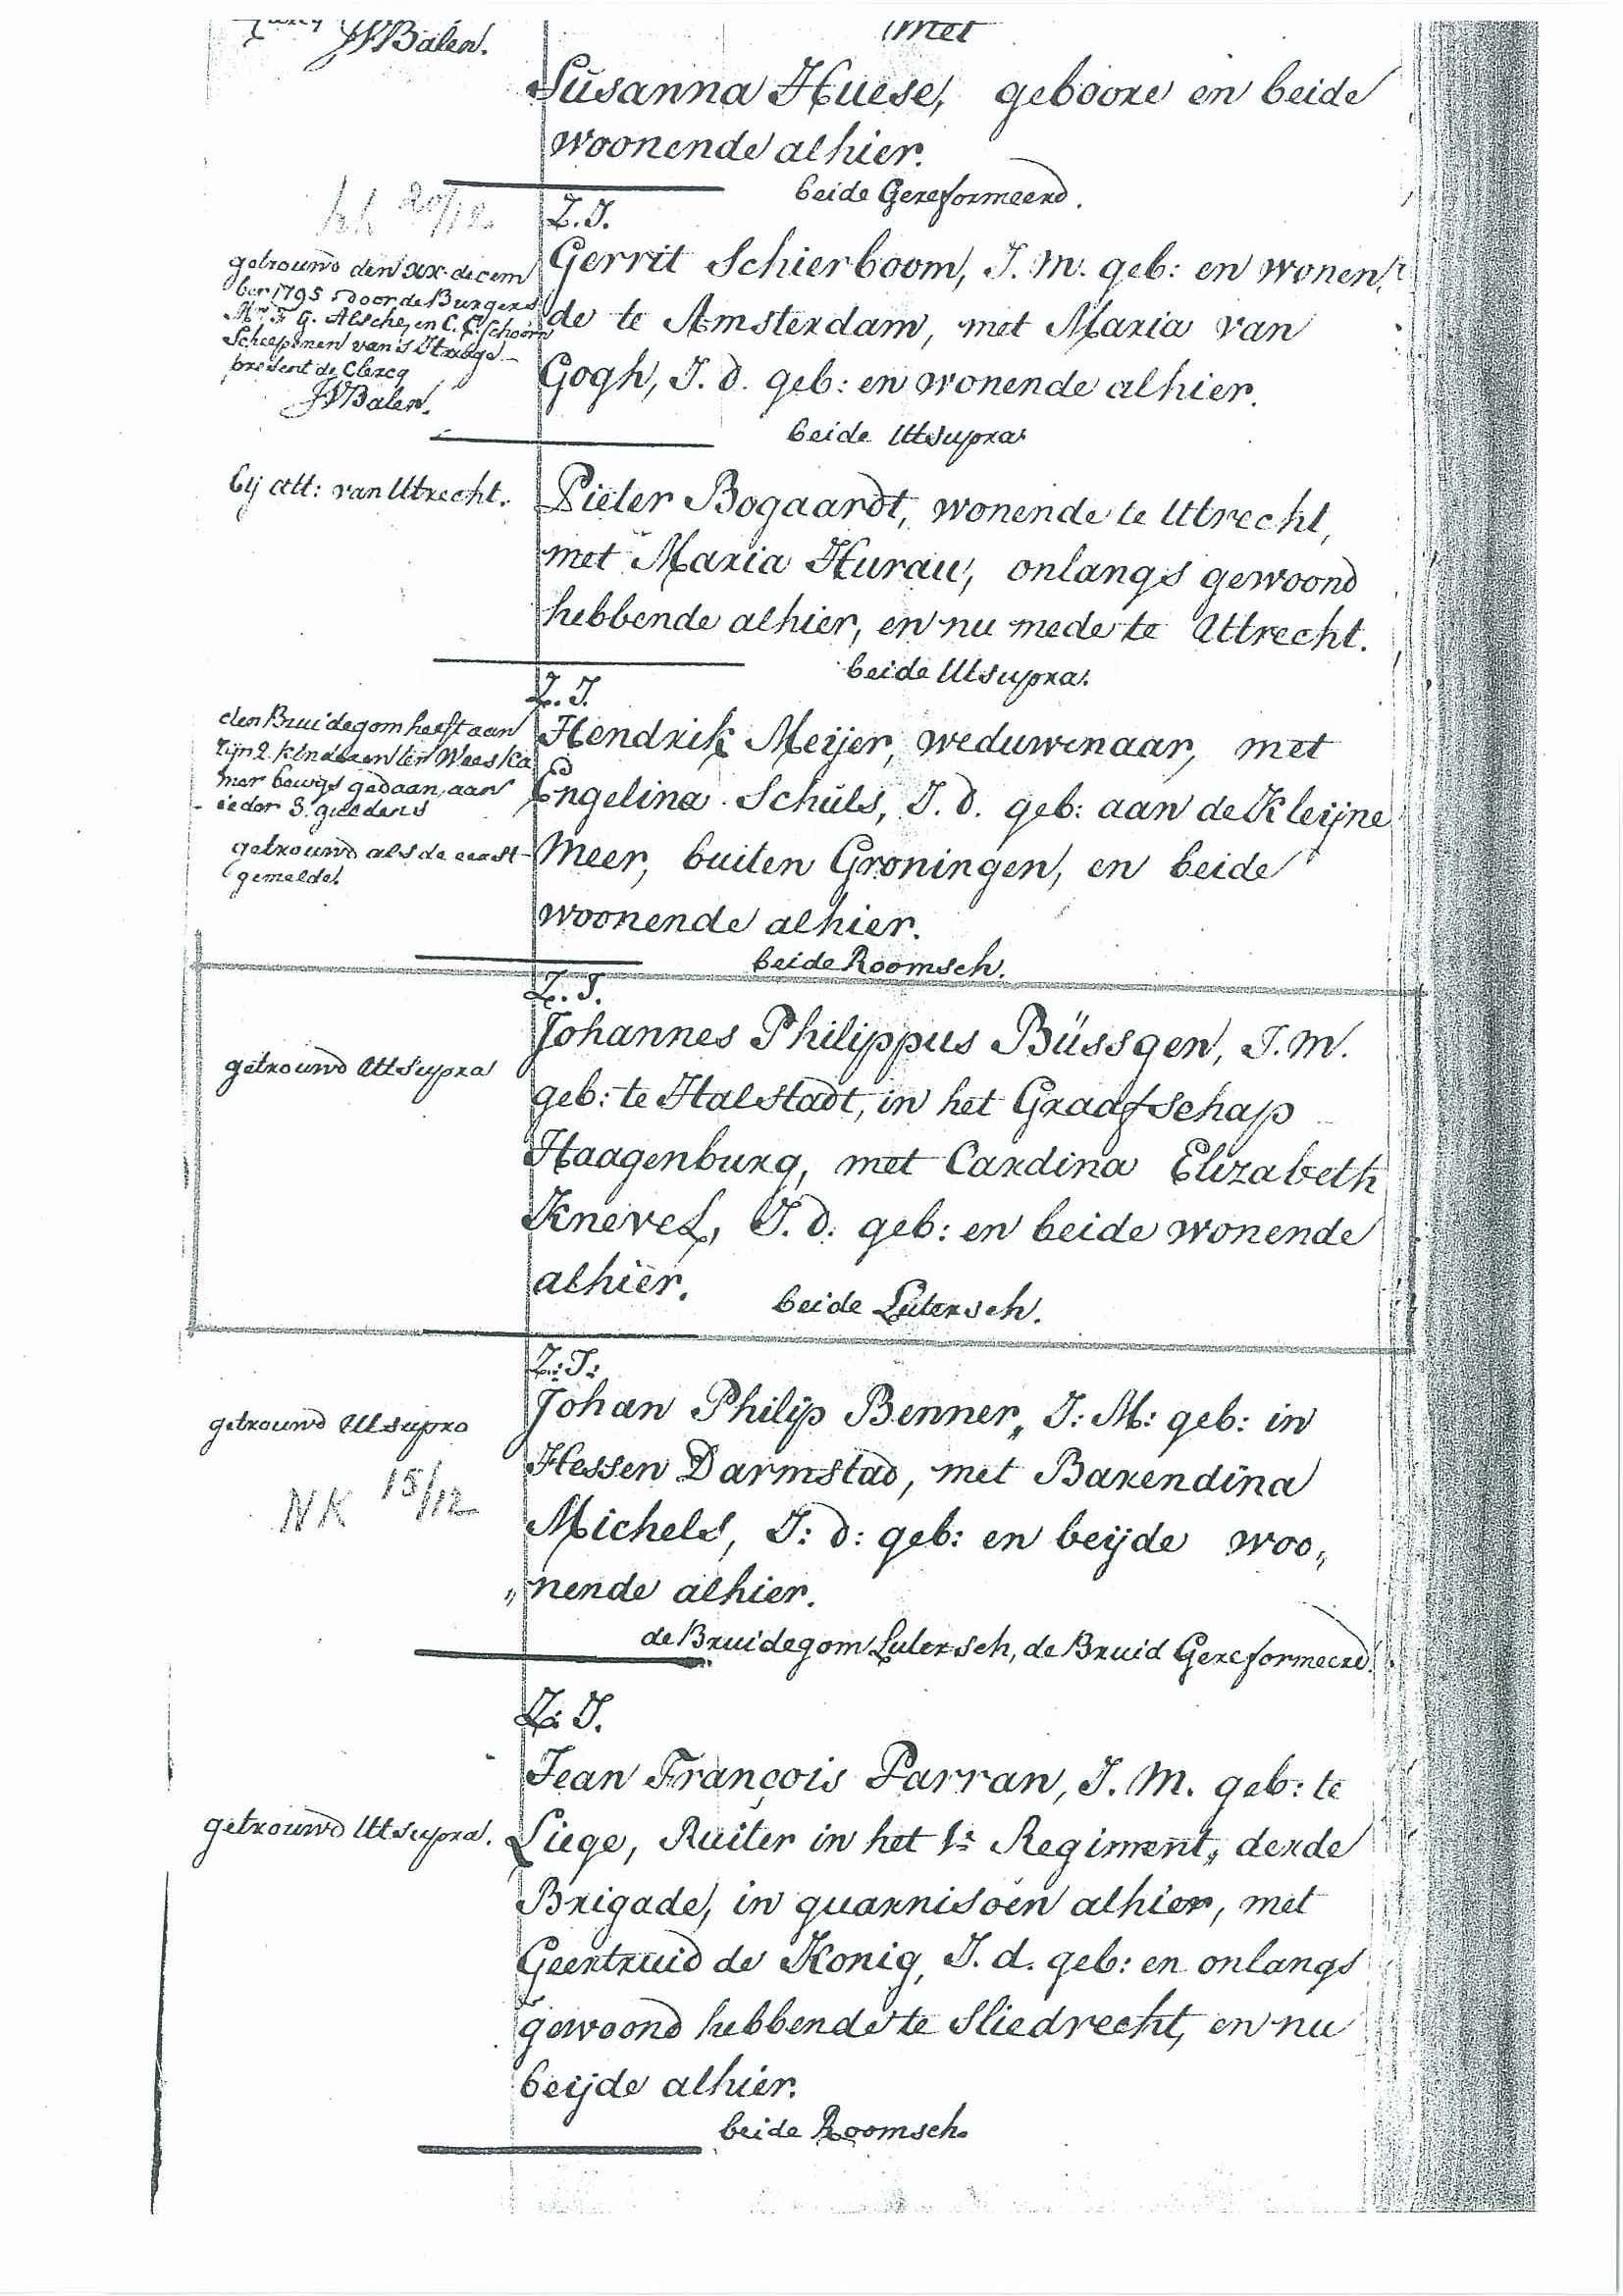 JVBalen.
met
Susanna Huese, geboore en beide
woonende alhier.
beide Gereformeerd.
20/12
Z.J.
getrouwd den xx decem
ber 1795 door de Burgers
Mr F G. Alsche, en C. C. Schoorn
Scheepenen van 's Hage
present de Clercq
JVBalen.
Gerrit Schierboom, J.M. geb: en wonen,,
de te Amsterdam, met Maria van
Gogh, J.d. geb: en wonende alhier.
beide Utsupra
bij att: van Utrecht.
Pieter Bogaardt, wonende te Utrecht,
met Maria Hurau, onlangs gewoond
hebbende alhier, en nu mede te Uttrecht.
beide Utsupra.
Z.J.
den Bruidegom heeft aan
zijn 2 kinderen ter Weeska
mer bewijs gedaan, aan
ieder 3 guldens
getrouwd als de eerst
gemelde.
Hendrik Meijer, weduwenaar, met
Engelina Schuls, J.d. geb: aan de Kleijne
Meer, buiten Groningen, en beide
woonende alhier.
beide Roomsch.
Z.J.
getrouwd Utsupra
Johannes Philippus Büssgen, J.M.
geb: te Halstadt, in het Graafschap
Haagenburg, met Cardina Elizabeth
Knevel, J.d. geb: en beide wonende
alhier.
beide Lutersch.
Z:J:
getrouwd Utsupra
NK 15/12
Johan Philip Benner,, J:M: geb: in
Hessen Darmstad, met Barendina
Michels, J:d: geb: en beijde woo,,
,,nende alhier.
de Bruidegom Lutersch, de Bruid Gereformeerd.
Z:J.
getrouwd Utsupra.
Jean François Parran, J.M. geb: te
Liege, Ruiter in het 1e Regiment,, derde
Brigade, in quarnisoen alhier, met
Geertruid de Konig, J.d. geb: en onlangs
gewoond hebbende te Sliedrecht, en nu
beijde alhier.
beide Roomsch.